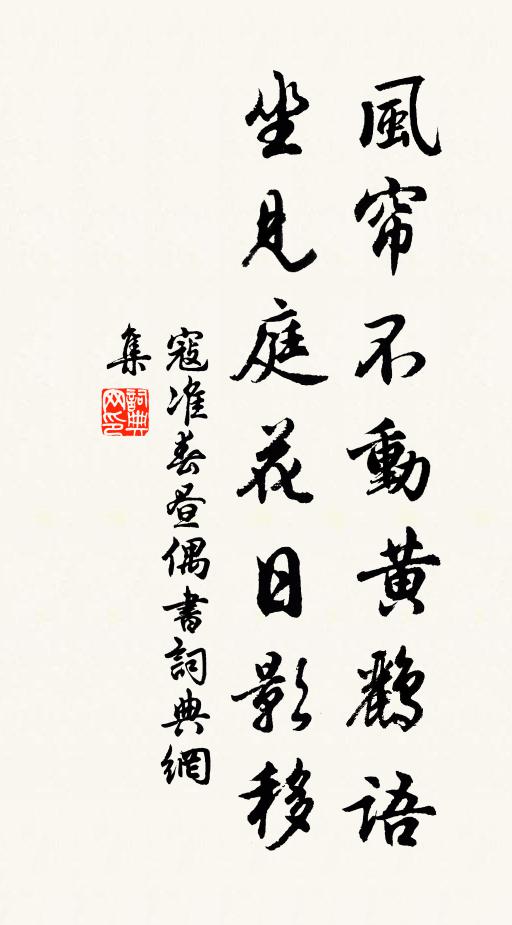 風帘不動黄鸝語
坐見庭花日影移
寇准春昼偶書詞典網
集
詞典
网印